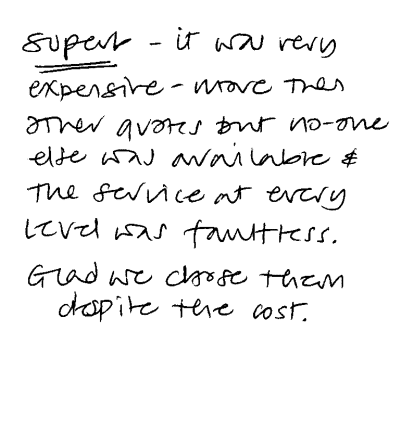 superb - it was very
expensive - more than
other quotes but no-one
else was available &
the service at every
level was faultless.
Glad we chose them
despite the cost.